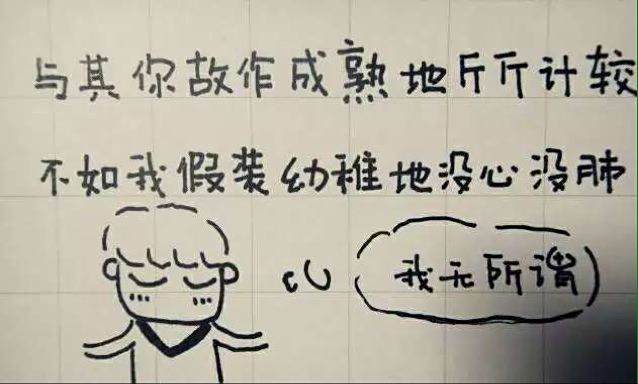 与其你故作成熟地斤斤计较
不如我假装幼稚地没心没肺
我无所谓